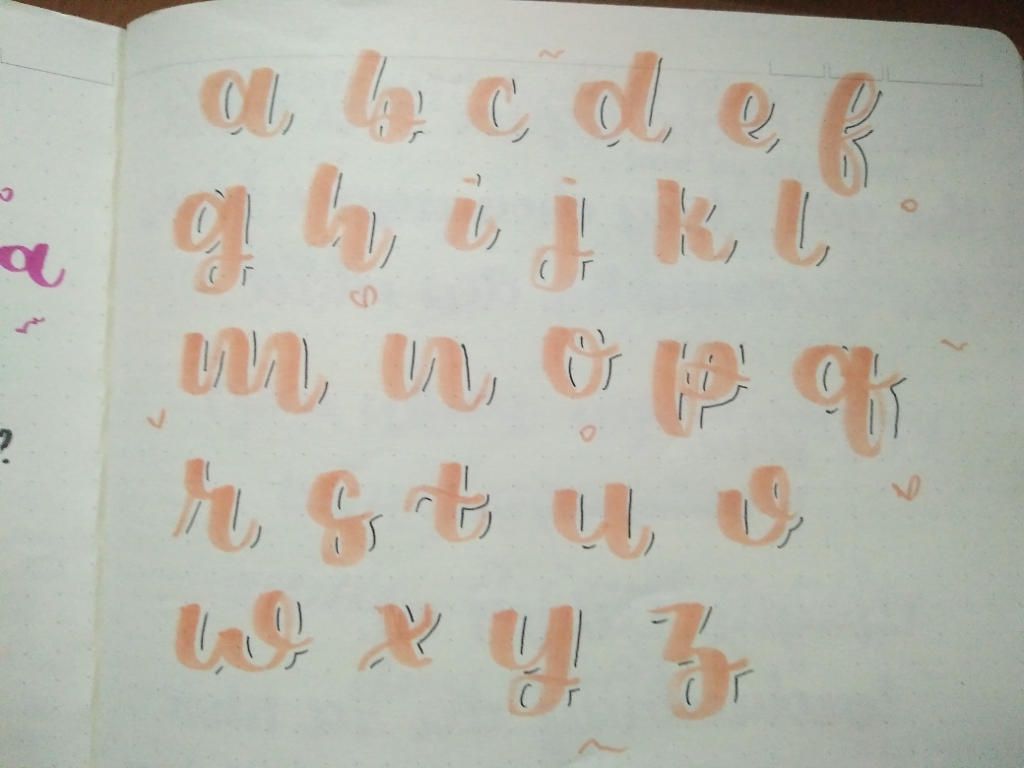 a b c d e f
g h i j k l
m n o p q
r s t u v
w x y z
a
?